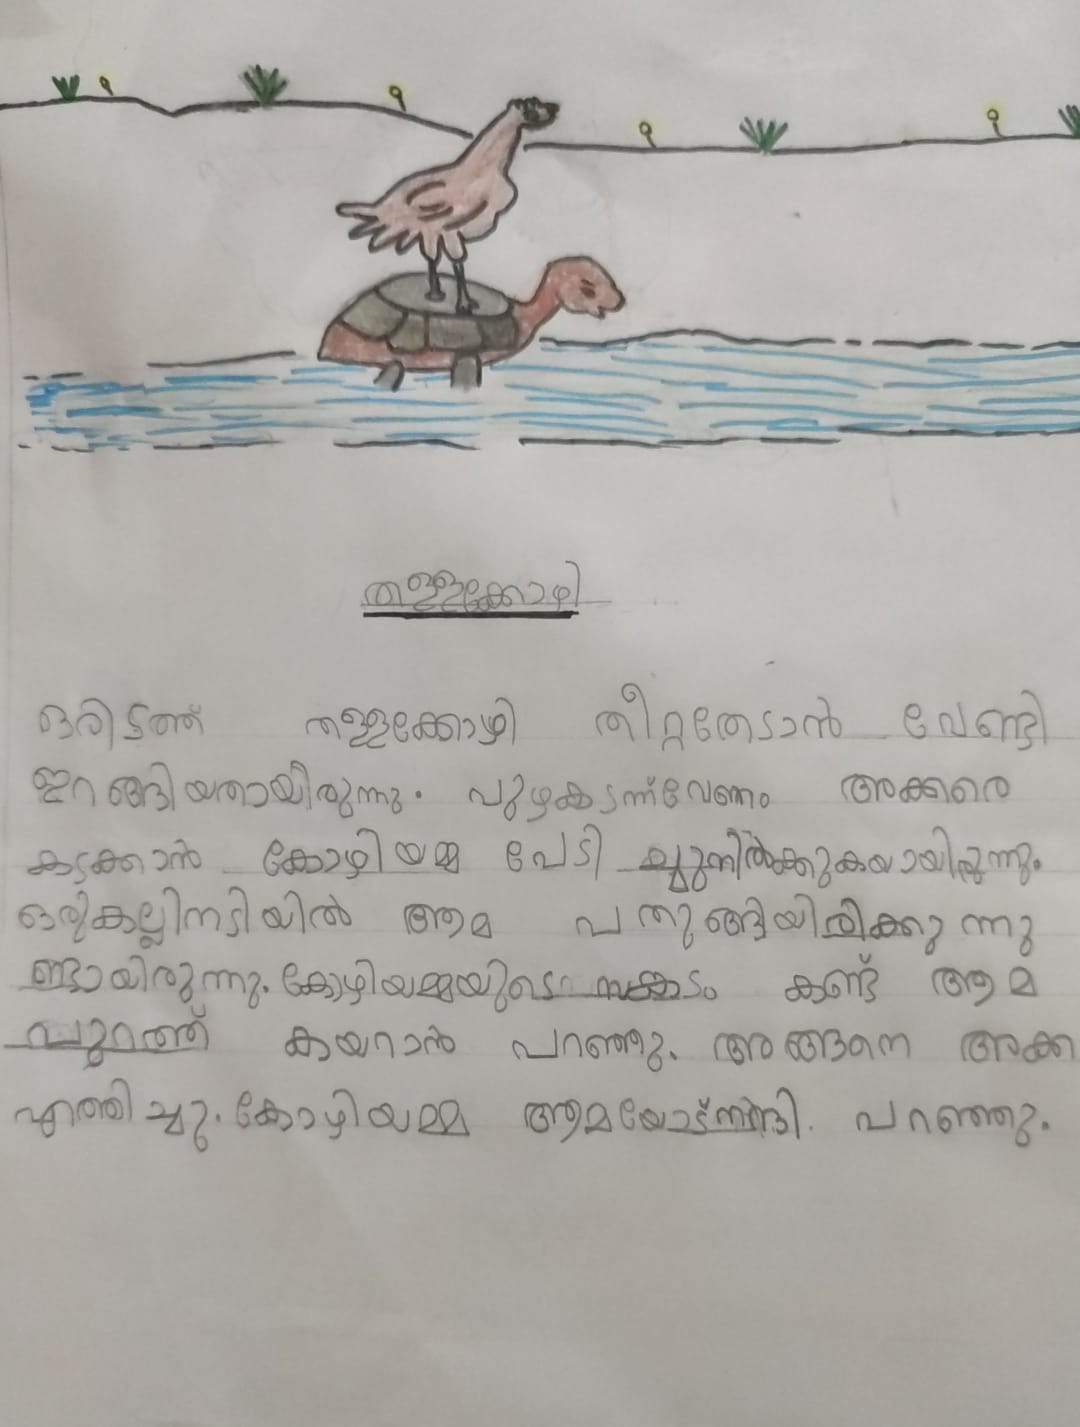 തള്ളക്കോഴി
ഒരിടത്ത് തള്ളക്കോഴി തീറ്റതേടാൻ വേണ്ടി
ഇറങ്ങിയതായിരുന്നു. പുഴകടന്ന്വേണം അക്കരെ
കടക്കാൻ കോഴിയമ്മ പേടിച്ചുനിൽക്കുകയായിരുന്നു.
ഒരുകല്ലിനടിയിൽ ആമ പതുങ്ങിയിരിക്കുന്നു
ണ്ടായിരുന്നു. കോഴിയമ്മയുടെ സങ്കടം കണ്ട് ആമ
പുറത്ത് കയറാൻ പറഞ്ഞു. അങ്ങനെ അക്ക
എത്തിച്ചു. കോഴിയമ്മ ആമയോട്നന്ദി പറഞ്ഞു.